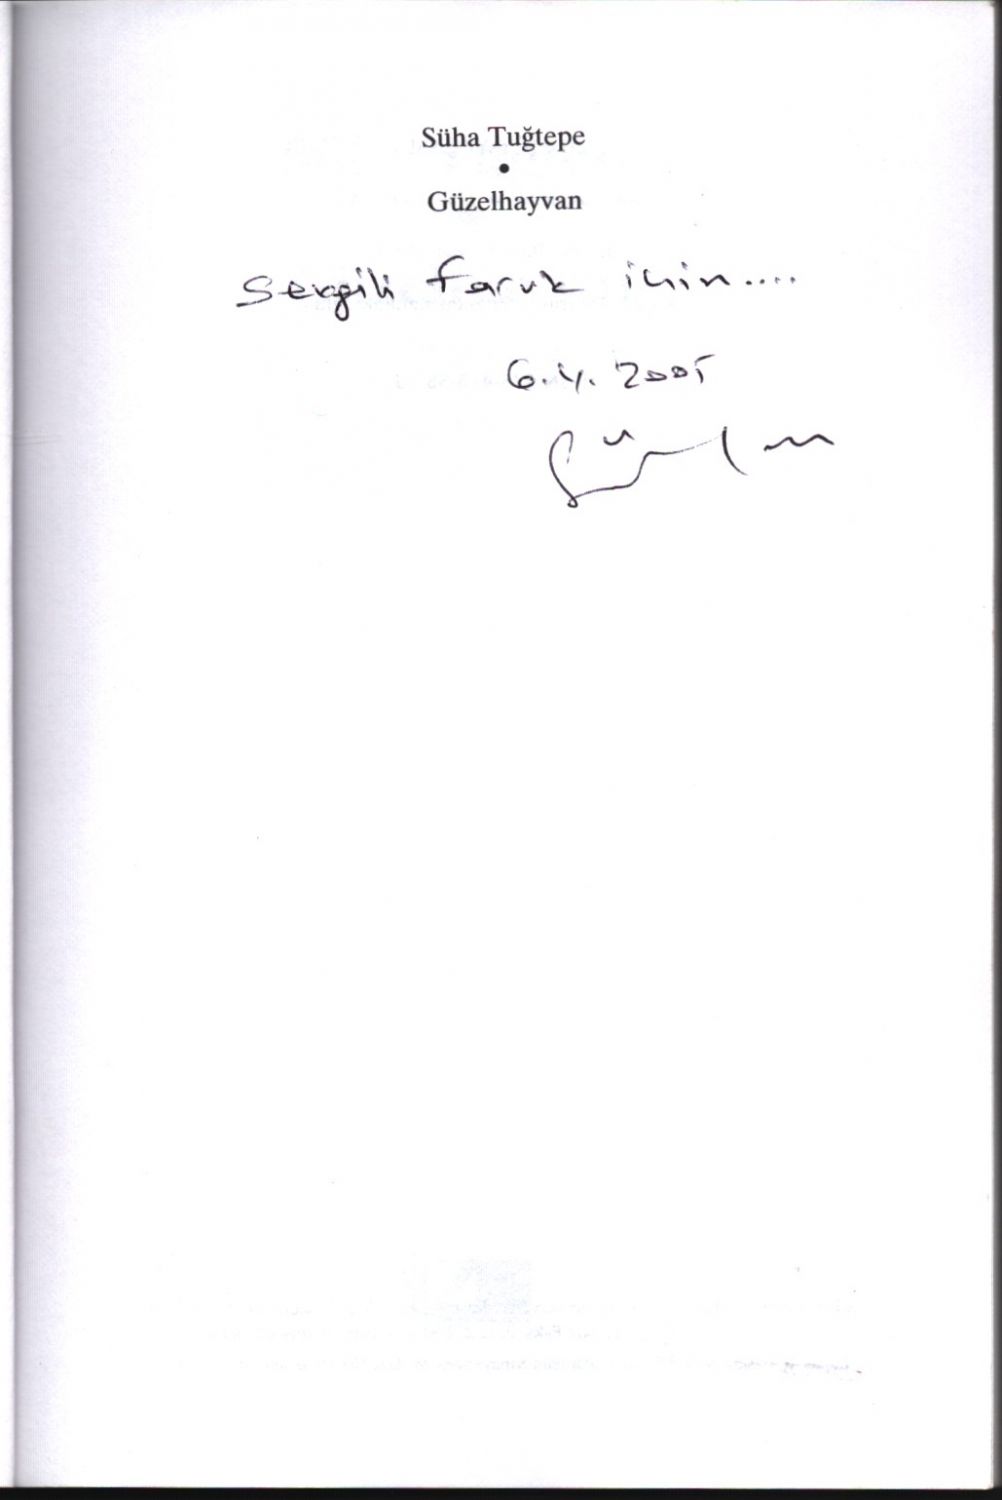 Süha Tuğtepe
•
Güzelhayvan
Sevgili Faruk için....
6.4.2005